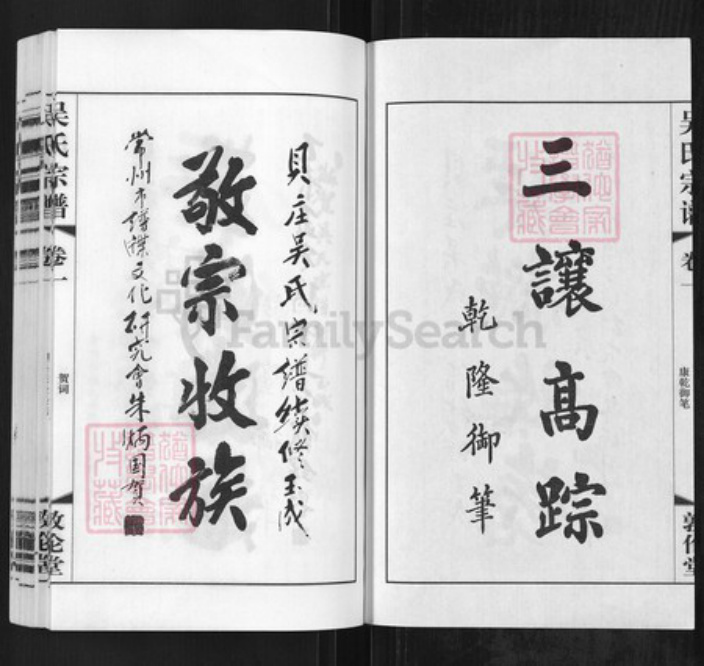 吴氏宗谱
卷一
康乾御笔
敦伦堂
三讓高踪
乾隆御筆
貝庄吴氏宗谱续修玉成
敬宗收族
常州市谱牒文化研究會朱炳国贺
吴氏宗谱
卷一
贺词
敦伦堂
FamilySearch